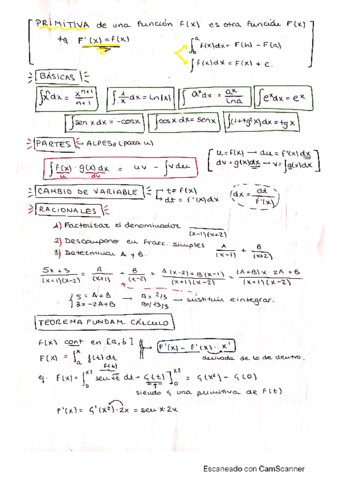 PRIMITIVA de una función f(x) es otra función F(x)
tq F'(x) = f(x)
∫_a^b f(x)dx = F(b) - F(a)
∫ f(x)dx = F(x) + C.
BÁSICAS
∫x^n dx = x^(n+1)/(n+1)
∫ 1/x dx = ln|x|
∫ a^x dx = a^x/ln a
∫ e^x dx = e^x
∫ sen x dx = -cos x
∫ cos x dx = sen x
∫(1+tg²x)dx = tg x
PARTES → ALPES (para u)
∫ f(x) · g(x) dx = uv - ∫ v du
u dv
u = f(x) → du = f'(x) dx
dv = g(x) dx → v = ∫ g(x) dx
CAMBIO DE VARIABLE
t = f(x)
dt = f'(x) dx
dx = dt/f'(x)
RACIONALES
1) Factorizar el denominador (x-1)(x+2)
2) Descompone en fracc. simples A/(x-1) + B/(x+2)
3) Determinar A y B.
5x+3/(x+1)(x-2) = A/(x+1) + B/(x-2) = A(x-2)+B(x-1)/(x+1)(x-2) = (A+B)x - 2A + B/(x+1)(x-2)
5 = A+B
3 = -2A+B
A = 2/3
B = 13/3
→ sustituir e integrar.
TEOREMA FUNDAM. CÁLCULO
f(x) cont en [a, b]
F'(x) = f(x) · x'
F(x) = ∫_a^x f(t) dt
derivada de lo de dentro.
ej. F(x) = ∫_0^x² sen t dt = G(t)]_0^x² = G(x²) - G(0)
siendo G una primitiva de f(t)
F'(x) = G'(x²) · 2x = sen x · 2x
Escaneado con CamScanner